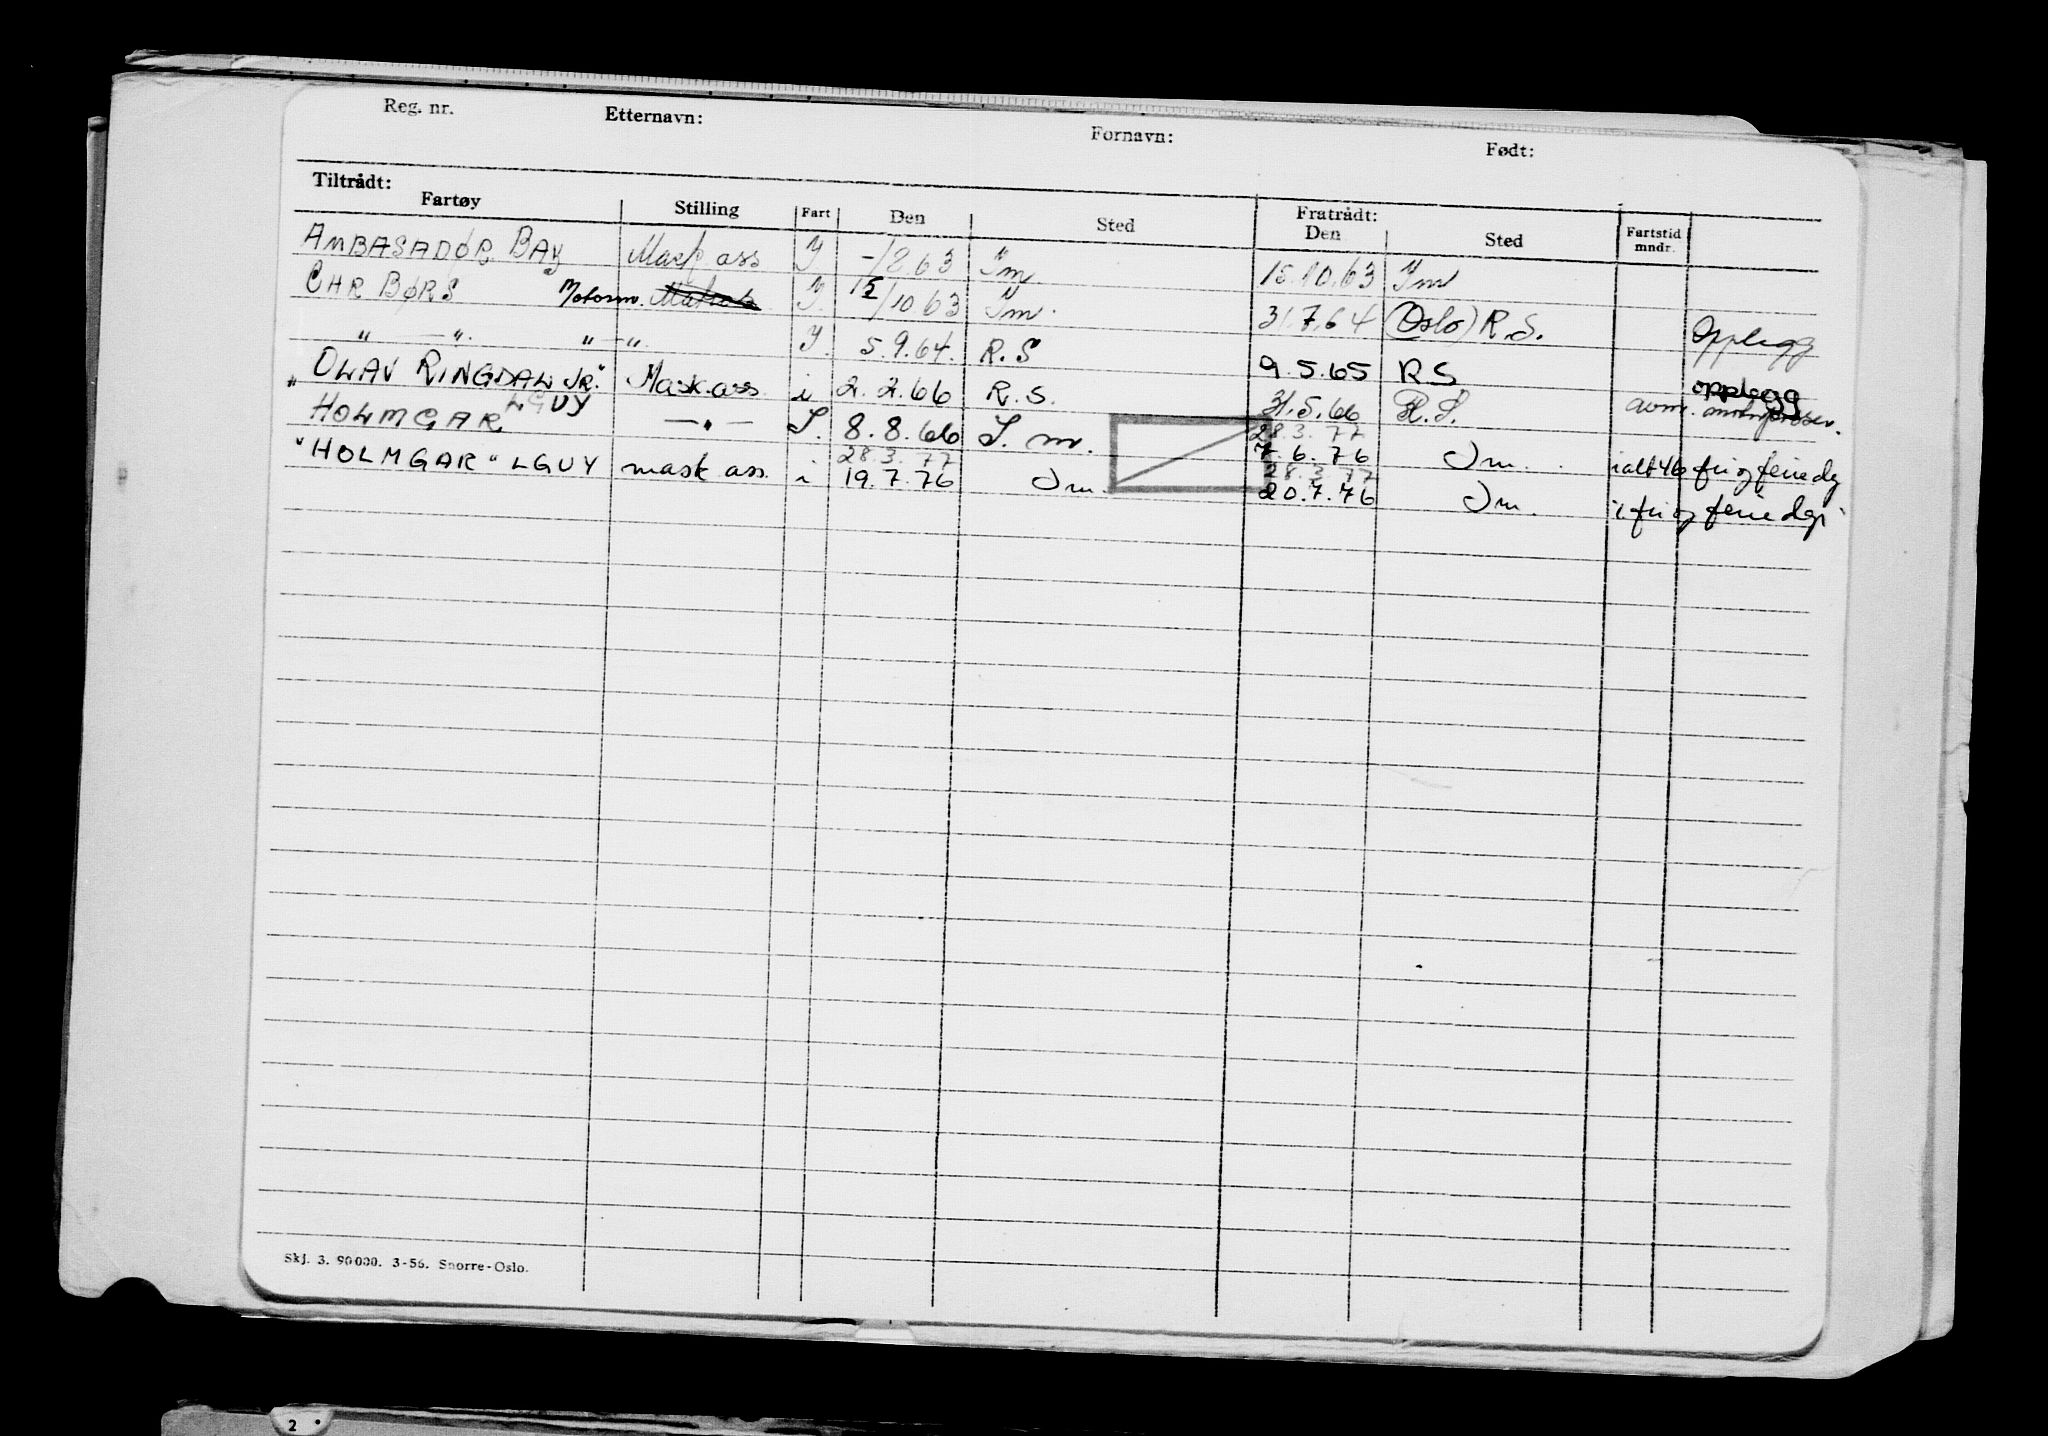 Reg. nr. Etternavn: Fornavn: Født:
Tiltrådt: Fratrådt:
Fartøy Stilling Fart Den Sted Den Sted Fartstid mndr.
AMBASADØR BAY Mask ass Y -/8 63 Ym 15.10.63 Ym
CHR BØRS Motorm. Y. 15/10 63 Ym. 31.7.64 (Oslo) R.S. Opplegg
" — " . " — " . Y. 5.9.64. R.S 9.5.65 R S opplegg
"OLAV RINGDAL JR." Mask.ass. i 2.2.66 R.S. 31.5.66 R.S. avm.
HOLMGAR LGUY — " — S. 8.8.66 S. m. 28.3.77 7.6.76 Im. ialt 46 fri og feriedg
"HOLMGAR" LGUY mask ass. i 28.3.77 19.7.76 Im. 28.3.77 20.7.76 Im. i fri og feriedgr
Skj. 3. 90000. 3-56. Snorre-Oslo.
2